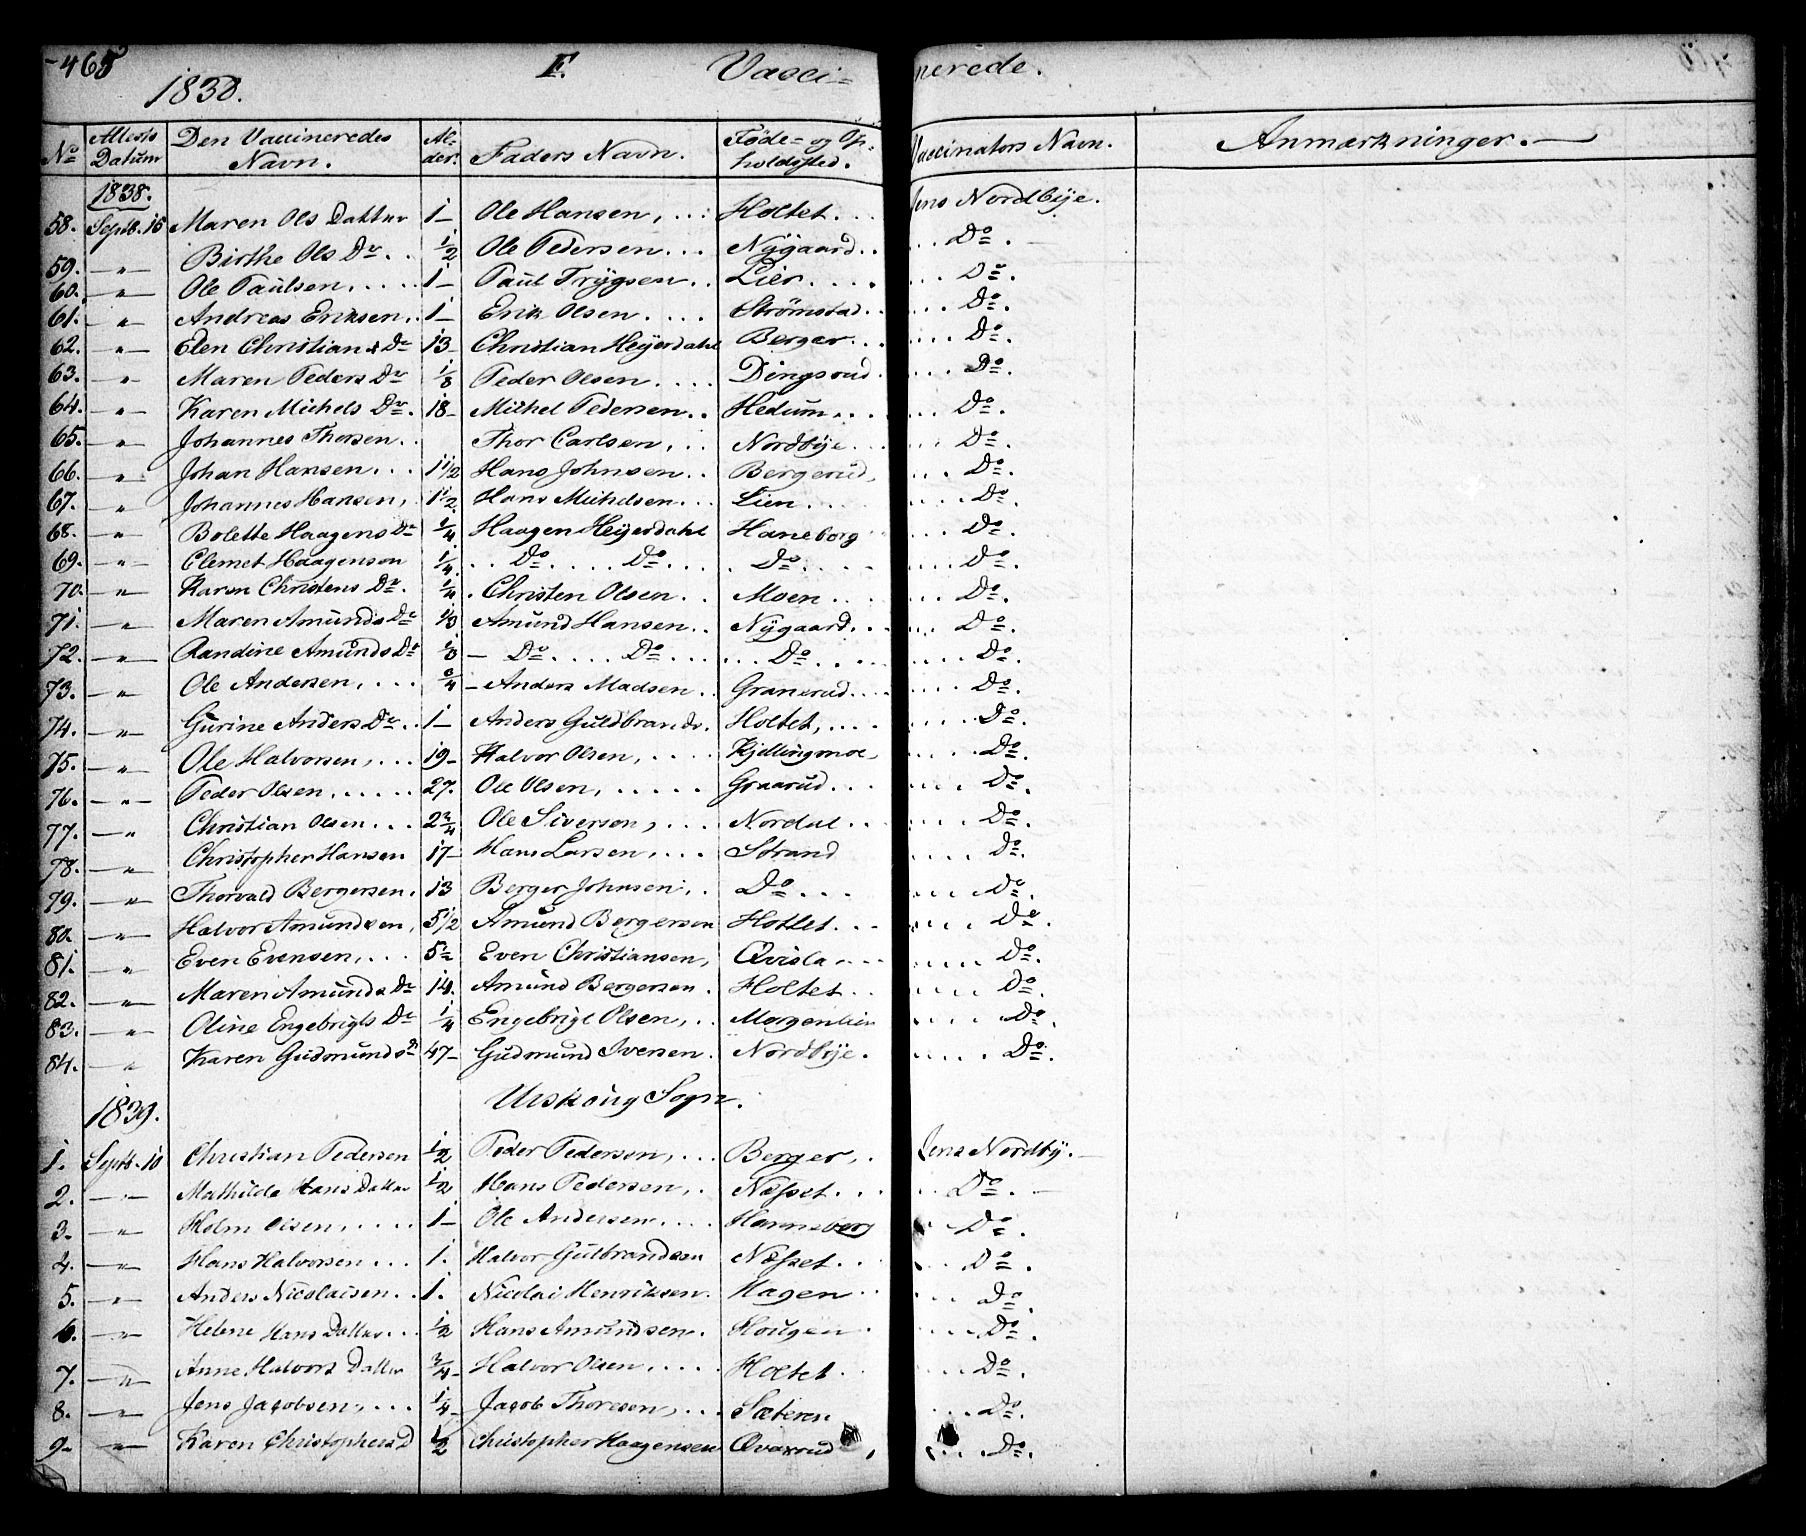 465 F. Vacci= nerede.
1838.
No Attests Datum Den Vaccineredes Navn. Al- der. Faders Navn. Føde- og Op- holdssted. Vaccinators Navn. Anmærkninger.
1838.
58. Septb. 16 Maren Ols Datter 1 Ole Hansen, Holtet. Jens Nordbye.
59. " Birthe Ols Dr. 1/2 Ole Pedersen Nygaard Do.
60. " Ole Paulsen 1 Paul Trygsen Lier Do.
61. " Andreas Eriksen 1 Erik Olsen Strømstad Do.
62. " Elen Christians Dr 13 Christian Heyerdahl Berger Do.
63. " Maren Peders Dr 1/8 Peder Olsen Dingsrud Do.
64. " Karen Michels Dr. 18 Michel Pedersen Hedum Do.
65. " Johannes Thorsen Thor Carlsen Nordbye Do.
66. " Johan Hansen 1 1/2 Hans Johnsen Bergerud Do.
67. " Johannes Hansen, 1 1/2 Hans Michelsen Lien Do.
68. " Bolette Haagens Dr 1/4 Haagen Heyerdahl Haneborg Do.
69. " Clemet Haagenson 1/4 Do. Do. Do. Do.
70. " Karen Christens Dr. 1/4 Christen Olsen Moen Do.
71. " Maren Amunds Dr 1/3 Amund Hansen Nygaard Do.
72. " Randine Amunds Dr 1/3 Do. Do. Do. Do.
73. " Ole Andersen, 3/4 Anders Madsen Granerud Do.
74. " Gurine Anders Dr 1 Anders Guldbrands. Holtet, Do.
75. " Ole Halvorsen, 19 Halvor Olsen, Kjellingmoe Do.
76. " Peder Olsen, 27. Ole Olsen, Graarud Do.
77. " Christian Olsen 2 3/4 Ole Siversen, Nordal Do.
78. " Christopher Hansen 17 Hans Larsen, Strand Do.
79. " Thorvald Bergersen. 13 Berger Johnsen, Do. Do.
80. " Halvor Amundsen, 5 1/2 Amund Bergerson Holtet. Do.
81. " Even Evensen, 5 Even Christiansen, Qvisla Do.
82. " Maren Amunds Dr 14. Amund Bergersen. Holtet Do.
83. " Oline Engebrigts Dr 1/4 Engebrigt Olsen, Morgenlien Do.
84. " Karen Gudmunds Dr 47 Gudmund Iversen. Nordbye. Do.
1839. Urskoug Sogn.
1. Septb. 10 Christian Pedersen 1/2 Peder Pedersen, Berger, Jens Nordby.
2. " Mathilde Hans Datter 1/2 Hans Pedersen, Næsset Do.
3. " Holm Olsen, 1 Ole Andersen Do.
4. " Hans Halvorsen 1. Halvor Gulbrandsen Næsset Do.
5. " Anders Nicolaisen 1. Nicolai Henriksen. Hagen Do.
6. " Helene Hans Datter 1/2 Hans Amundsen. Hougen Do.
7. " Anne Halvors Datter 3/4 Halvor Olsen, Holtet Do.
8. " Jens Jacobsen, 1/4 Jacob Thoresen, Sæteren Do.
9. " Karen Christophers D 1/2 Christopher Haagensen Qvarrud Do.